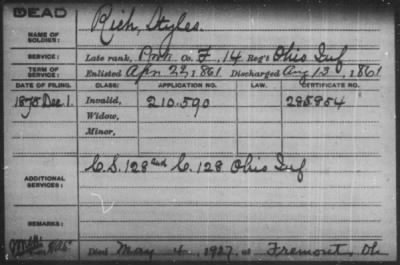 DEAD
NAME OF SOLDIER: Rich, Styles.
SERVICE: Late rank, Pvt. Co. F, 14 Reg't Ohio Inf
TERM OF SERVICE: Enlisted Apr 22, 1861 Discharged Aug 13, 1861
DATE OF FILING. CLASS: APPLICATION NO. LAW. CERTIFICATE NO.
1878 Dec. 1. Invalid, 210.590 295954
Widow,
Minor,
ADDITIONAL SERVICES: C. S. 128 and C. 128 Ohio Inf
REMARKS:
Died May 4, 1927, at Fremont, Oh